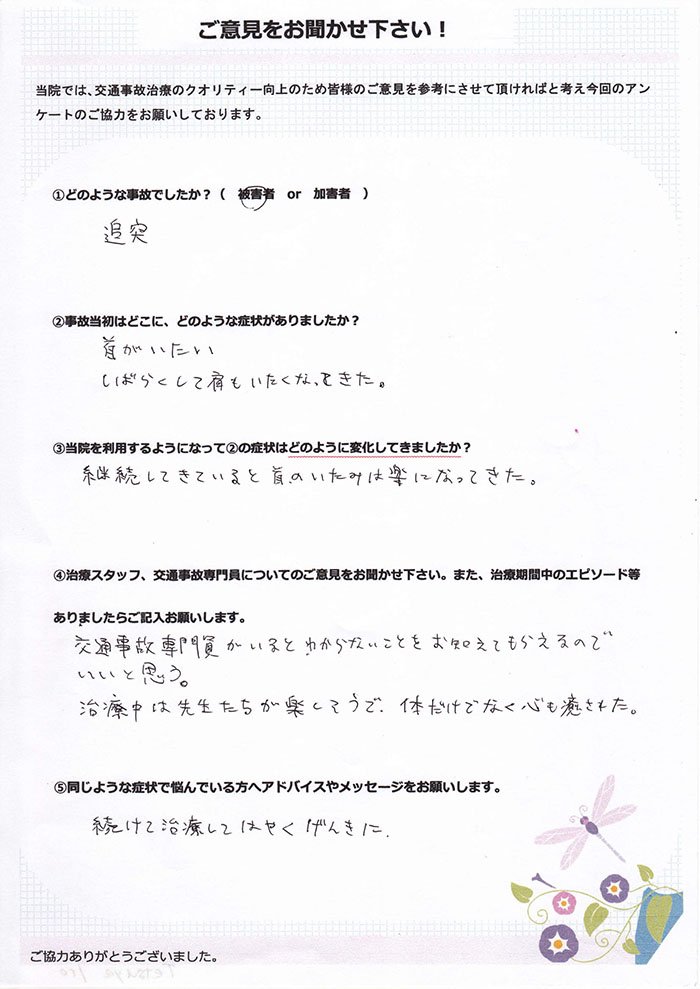 ご意見をお聞かせ下さい！
当院では、交通事故治療のクオリティー向上のため皆様のご意見を参考にさせて頂ければと考え今回のアン
ケートのご協力をお願いしております。
①どのような事故でしたか？（　被害者　or　加害者　）
追突
②事故当初はどこに、どのような症状がありましたか？
首がいたい
しばらくして肩もいたくなってきた。
③当院を利用するようになって②の症状はどのように変化してきましたか？
継続してきていると首のいたみは楽になってきた。
④治療スタッフ、交通事故専門員についてのご意見をお聞かせ下さい。また、治療期間中のエピソード等
ありましたらご記入お願いします。
交通事故専門員がいるとわからないことをお知えてもらえるので
いいと思う。
治療中は先生たちが楽しそうで、体だけでなく心も癒された。
⑤同じような症状で悩んでいる方へアドバイスやメッセージをお願いします。
続けて治療してはやくげんきに.
ご協力ありがとうございました。